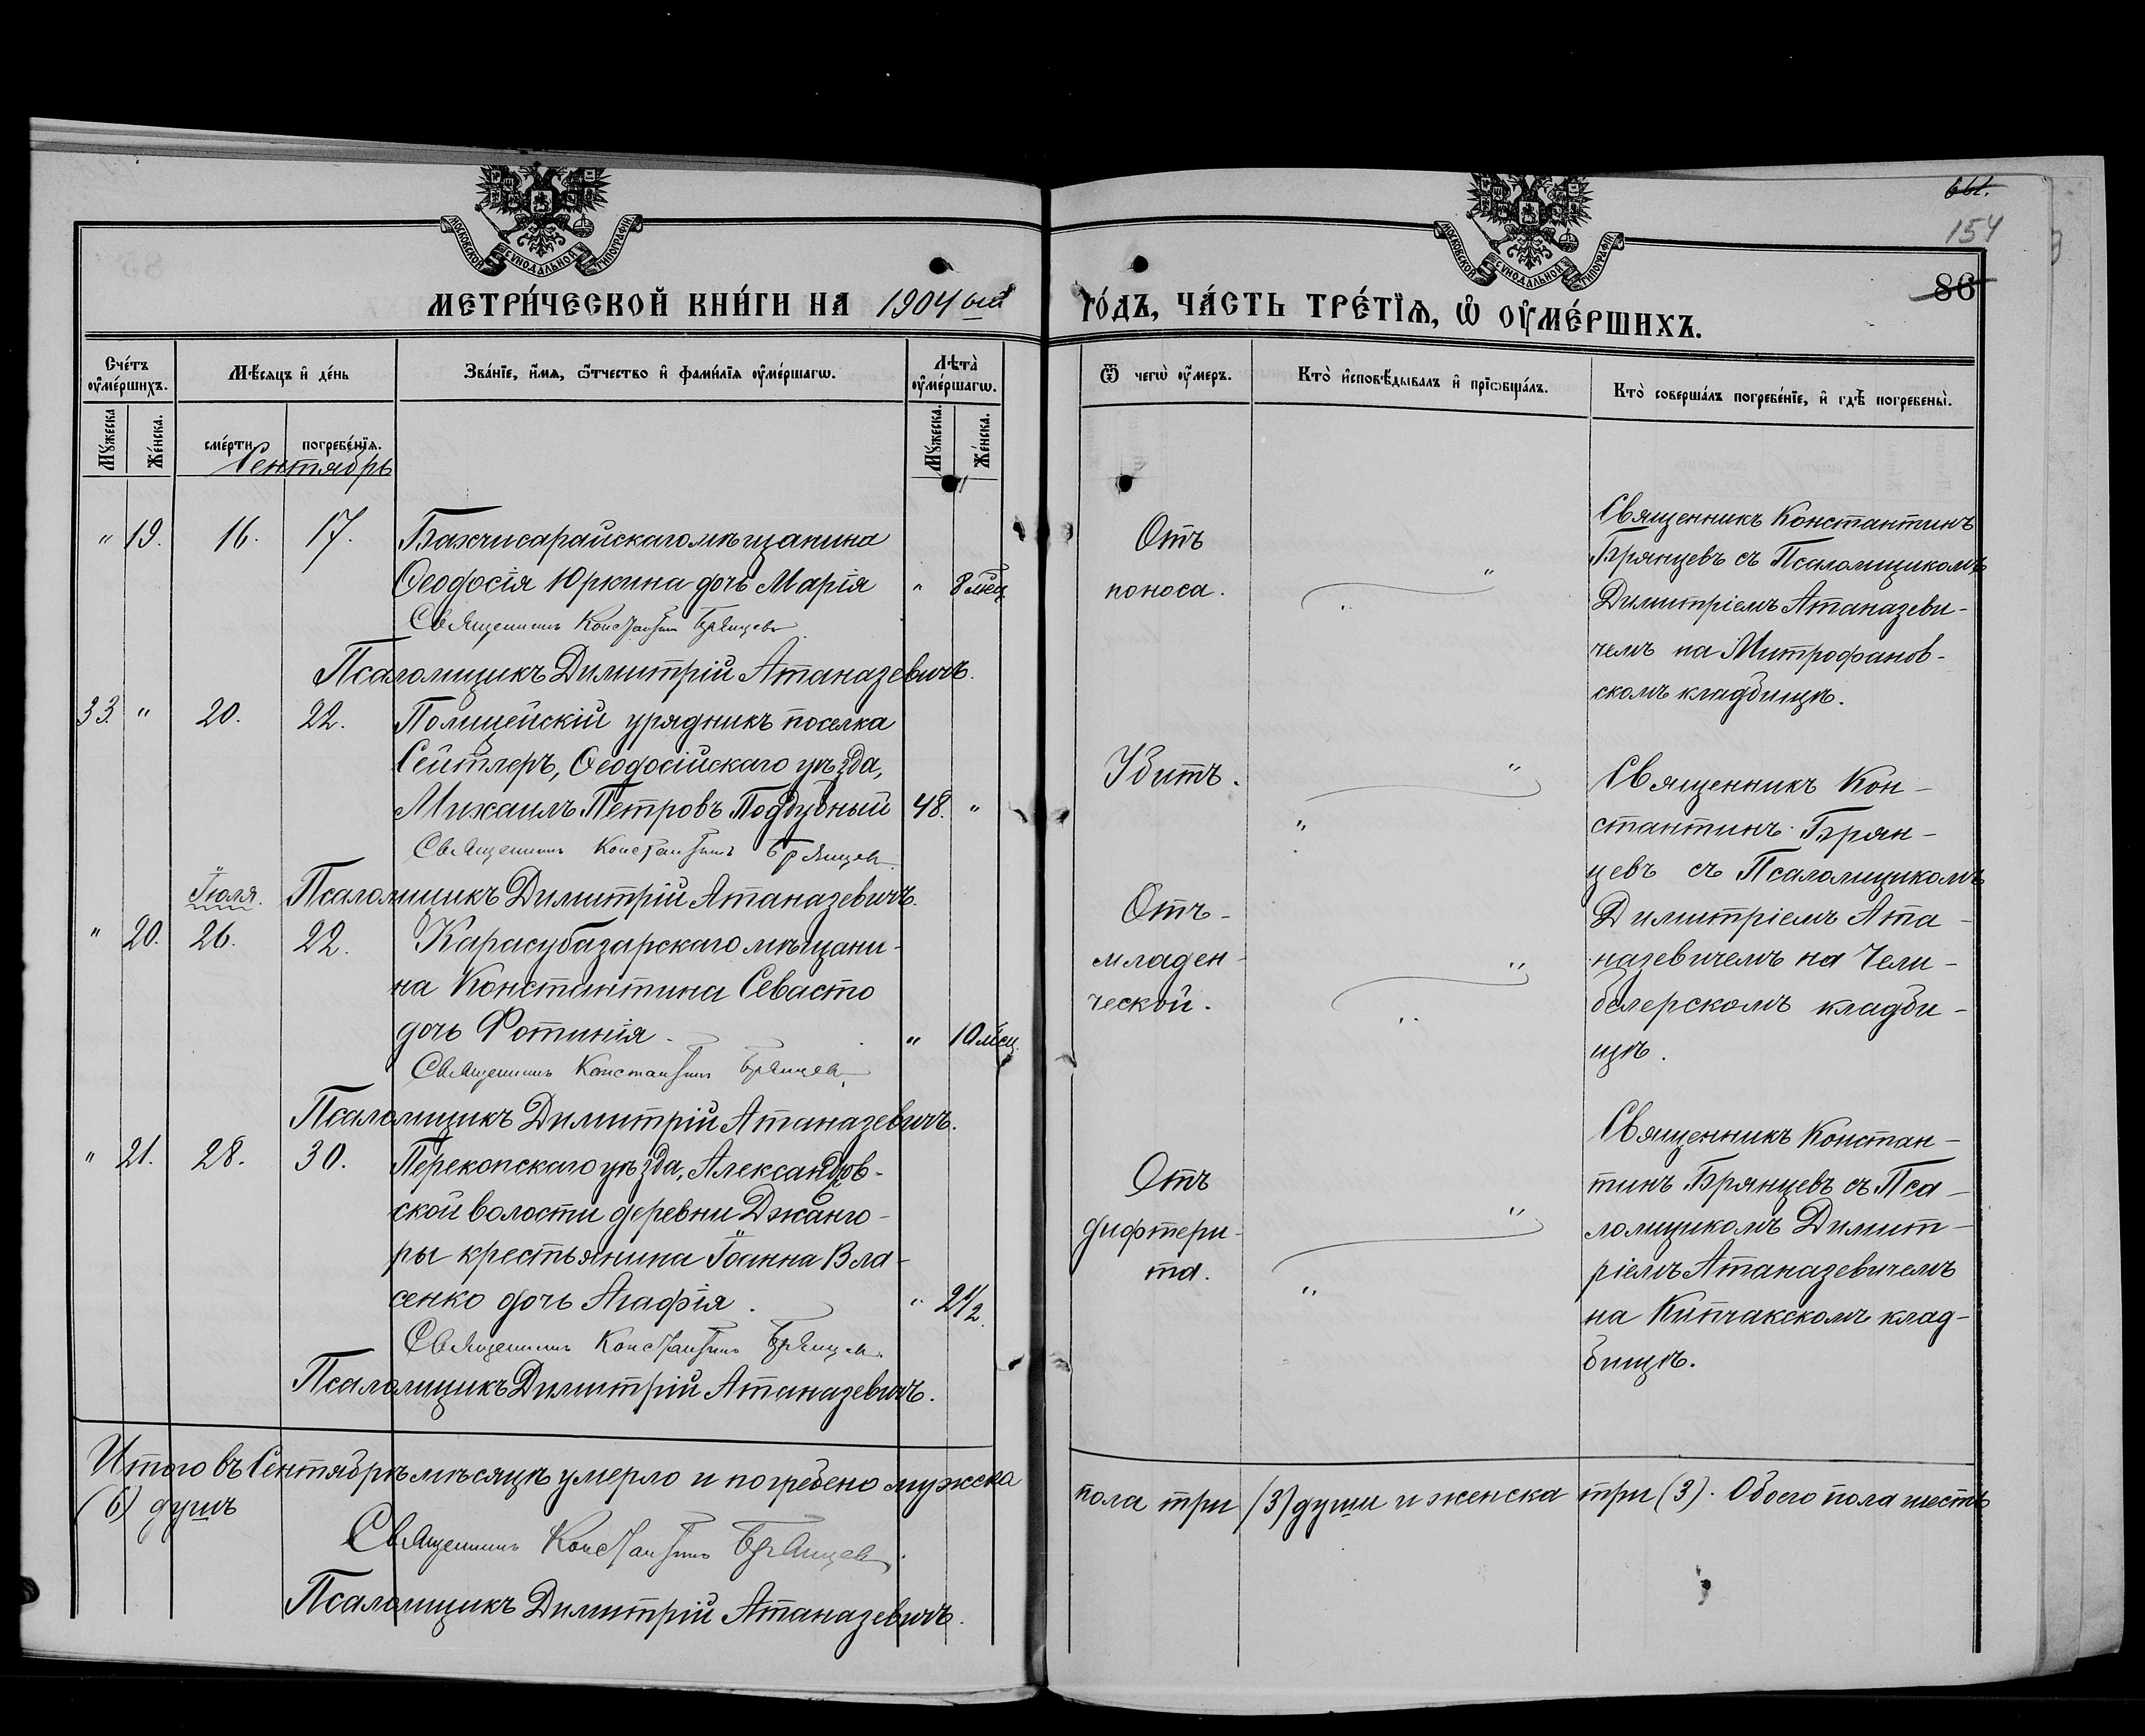 ббі.
154
86
МОСКОВСКОЙ СУНОДАЛЬНОЙ ТИПОГРАФІИ
МОСКОВСКОЙ СУНОДАЛЬНОЙ ТИПОГРАФІИ
МЕТРИ́ЧЕСКОЙ КНИ́ГИ НА 1904 ый
ГО́ДЪ, ЧА́СТЬ ТРЕ́ТЇѦ, Ѡ҆ ОУ҆МЕ́РШИХЪ.
Сче́тъ оу҆ме́ршихъ.
Мѣ́сѧцъ и҆ де́нь
Зва́нїе, и҆́мѧ, ѻ҆́тчество и҆ фами́лїѧ оу҆ме́ршагѡ.
Лѣта̀ оу҆ме́ршагѡ.
Ѿ чегѡ̀ оу҆́меръ.
Кто̀ и҆сповѣ́дывалъ и҆ прїѡбща́лъ.
Кто̀ соверша́лъ погребе́нїе, и҆ гдѣ̀ погребены̀.
Мꙋ́жеска
Же́нска.
сме́рти
погребе́нїѧ.
Мꙋ́жеска.
Же́нска.
Сентябрь
" 19. 16. 17. Бахчисарайскаго мѣщанина
Ѳеодосія Юркина дочь Марія " 8 мѣц
Священникъ Константинъ Брянцевъ
Псаломщикъ Димитрій Атаназевичъ.
Отъ
поноса.
Священникъ Константинъ
Брянцевъ съ Псаломщикомъ
Димитріемъ Атаназеви-
чемъ на Митрофанов-
скомъ кладбищѣ.
33. " 20. 22. Полицейскій урядникъ поселка
Сейтлеръ, Ѳеодосійскаго уѣзда,
Михаилъ Петровъ Поддубный 48. "
Священникъ Константинъ Брянцевъ
Псаломщикъ Димитрій Атаназевичъ.
Убитъ.
Священникъ Кон-
стантинъ Брян-
цевъ съ Псаломщикомъ
Димитріемъ Ата-
назевичемъ на Чели-
белерскомъ кладби-
щѣ.
Іюля.
" 20. 26. 22. Карасубазарскаго мѣщани-
на Константина Севасто
дочь Фотинія. " 10 мѣсц.
Священникъ Константинъ Брянцевъ
Псаломщикъ Димитрій Атаназевичъ.
Отъ-
младен-
ческой.
" 21. 28. 30. Перекопскаго уѣзда, Александров-
ской волости деревни Джанго-
ры крестьянина Іоанна Вла-
сенко дочь Агафія. " 2 1/2.
Священникъ Константинъ Брянцевъ.
Псаломщикъ Димитрій Атаназевичъ.
Отъ
дифтери-
та.
Священникъ Констан-
тинъ Брянцевъ съ Пса-
ломщикомъ Димит-
ріемъ Атаназевичемъ
на Кипчакскомъ клад-
бищѣ.
Итого въ Сентябрѣ мѣсяцѣ умерло и погребено мужска
пола три (3) души и женска три (3). Обоего пола шесть
(6) душъ
Священникъ Константинъ Брянцевъ.
Псаломщикъ Димитрій Атаназевичъ.